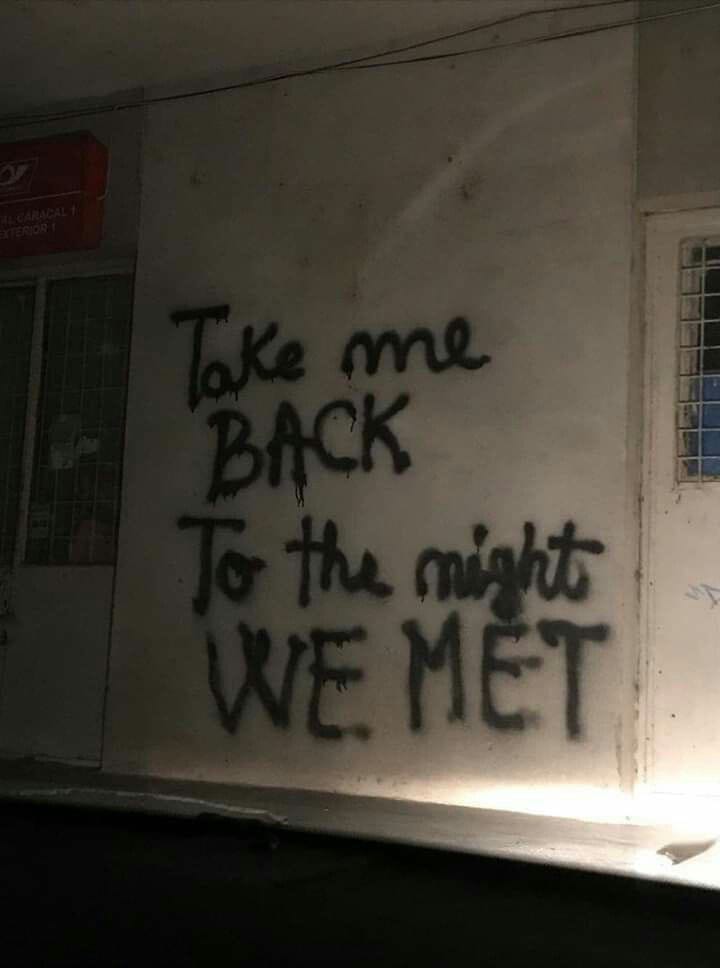 AL CARACAL 1
EXTERIOR 1
Take me
BACK
To the night
WE MET